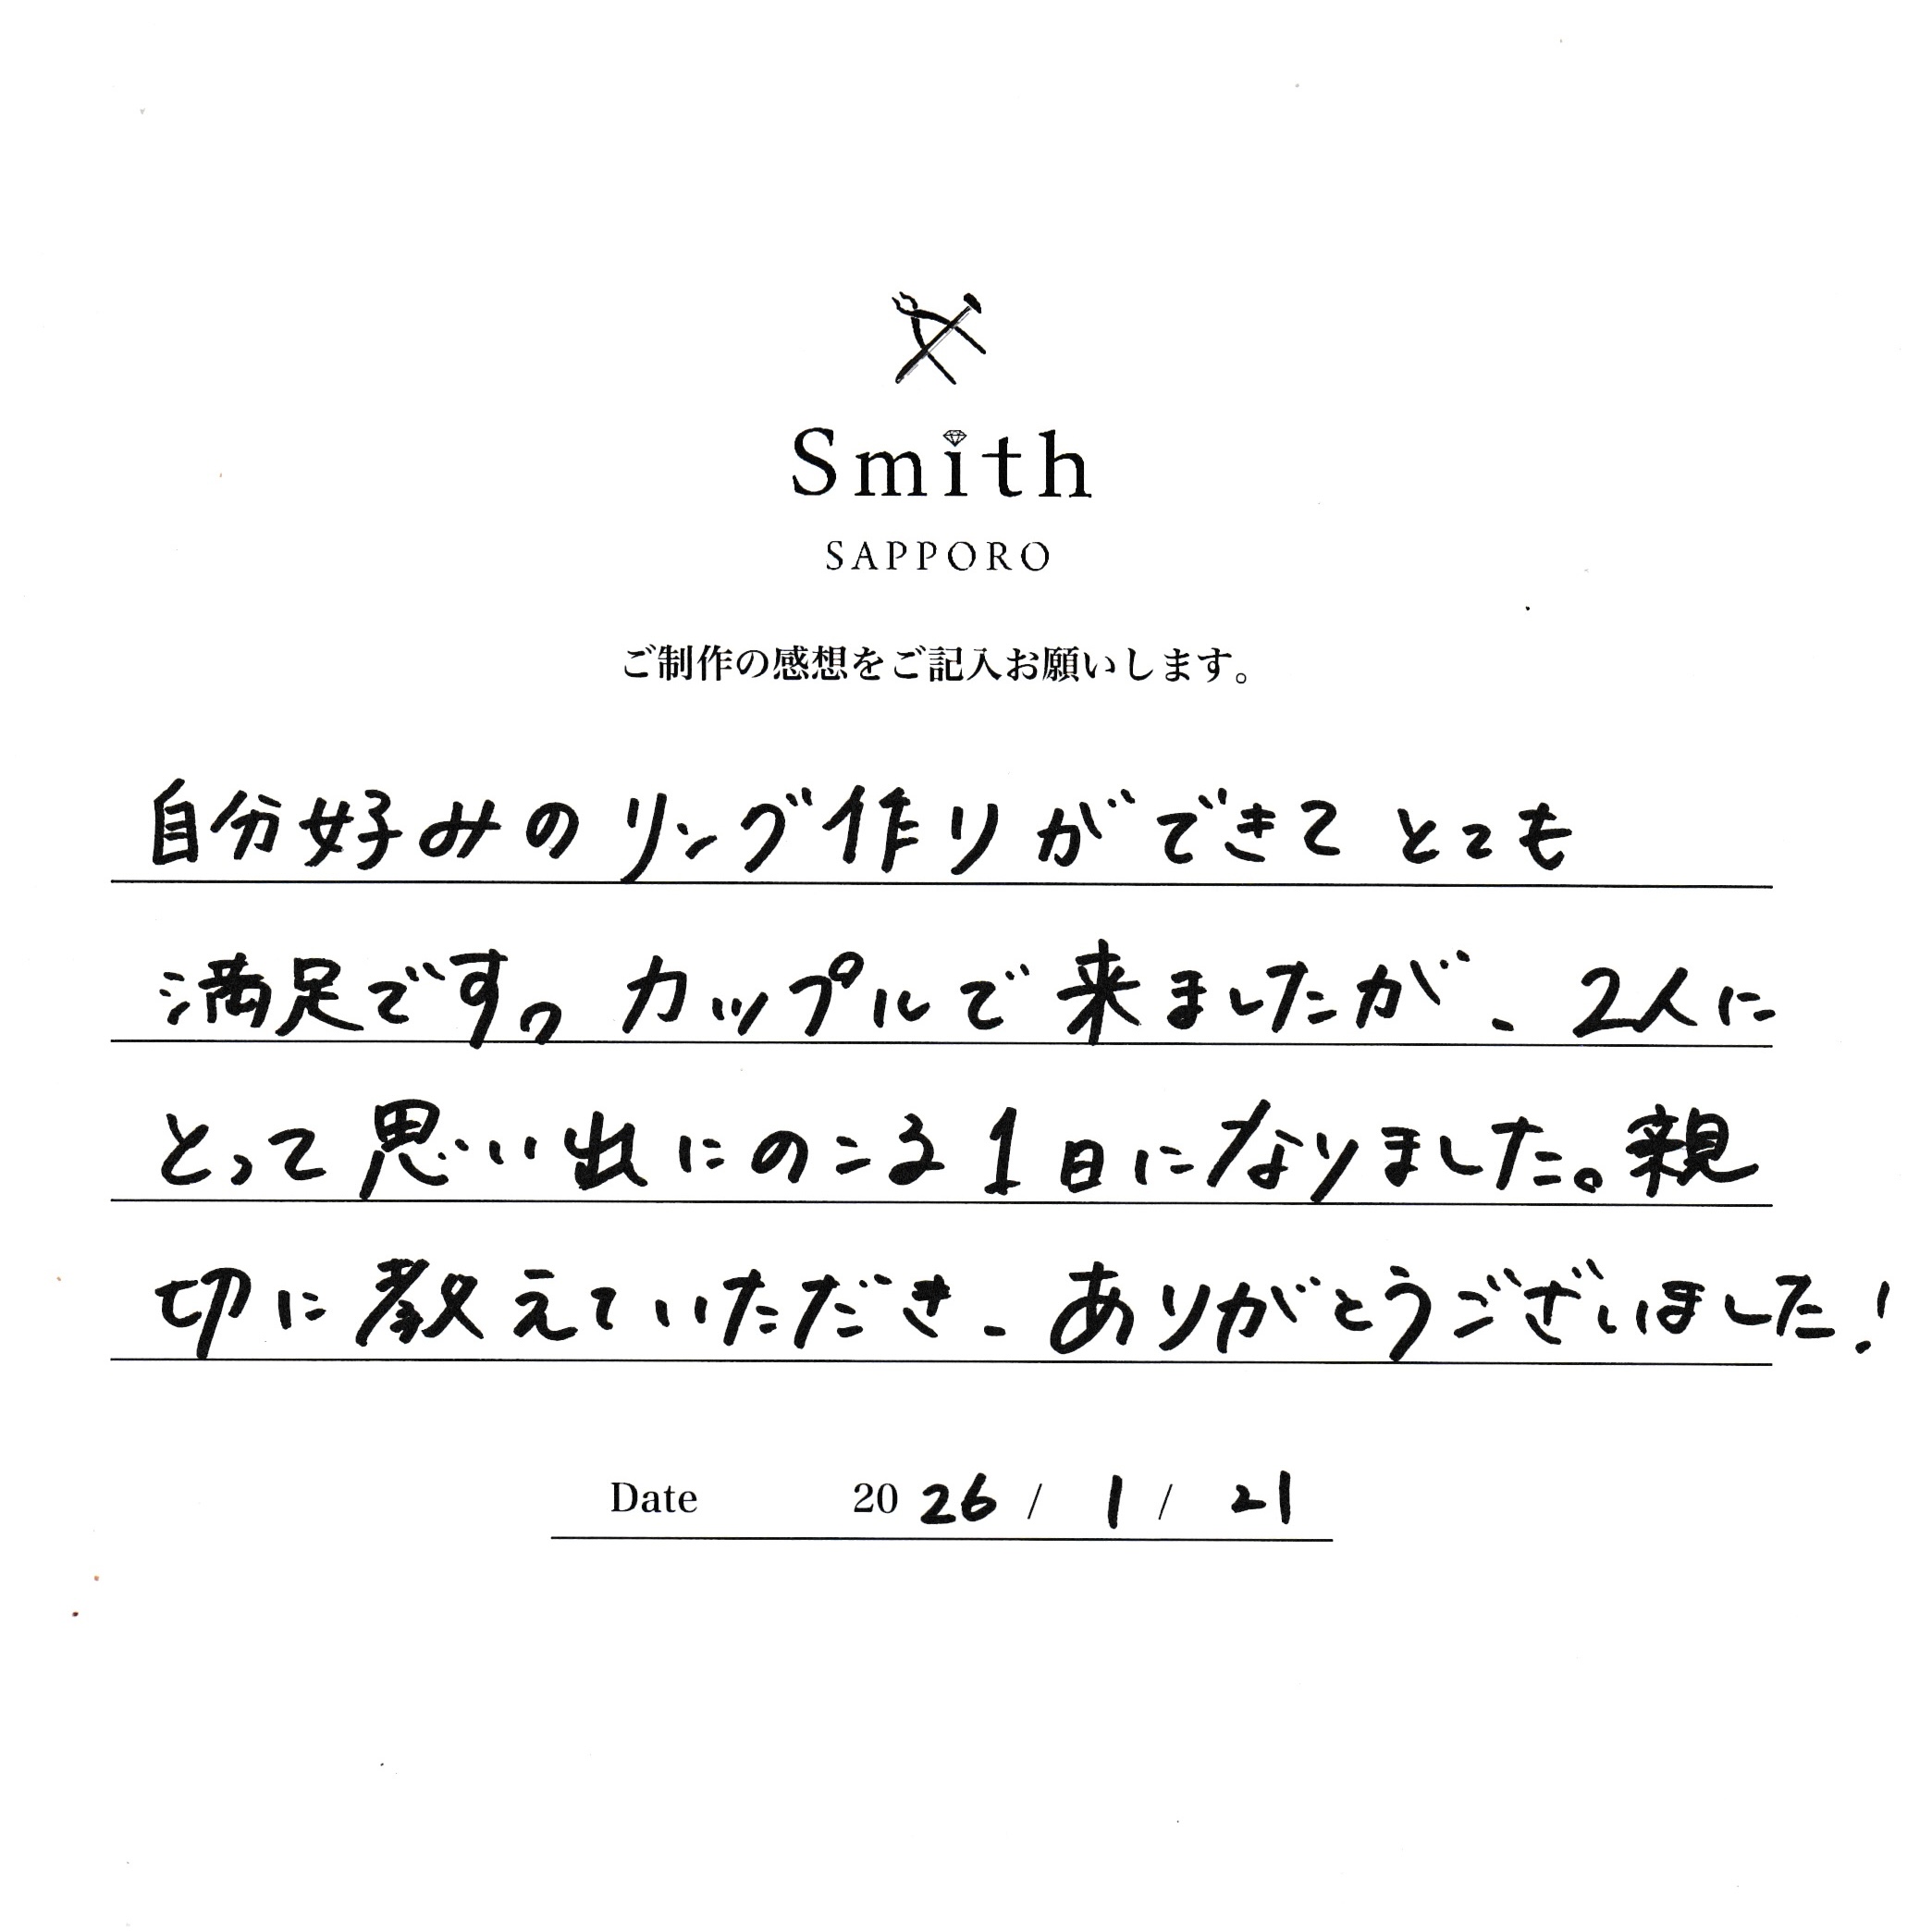 Smith
SAPPORO
ご制作の感想をご記入お願いします。
自分好みのリング作りができてとても
満足です。カップルで来ましたが、2人に
とって思い出にのこる1日になりました。親
切に教えていただき、ありがとうございました!
Date 2026 / 1 / 21